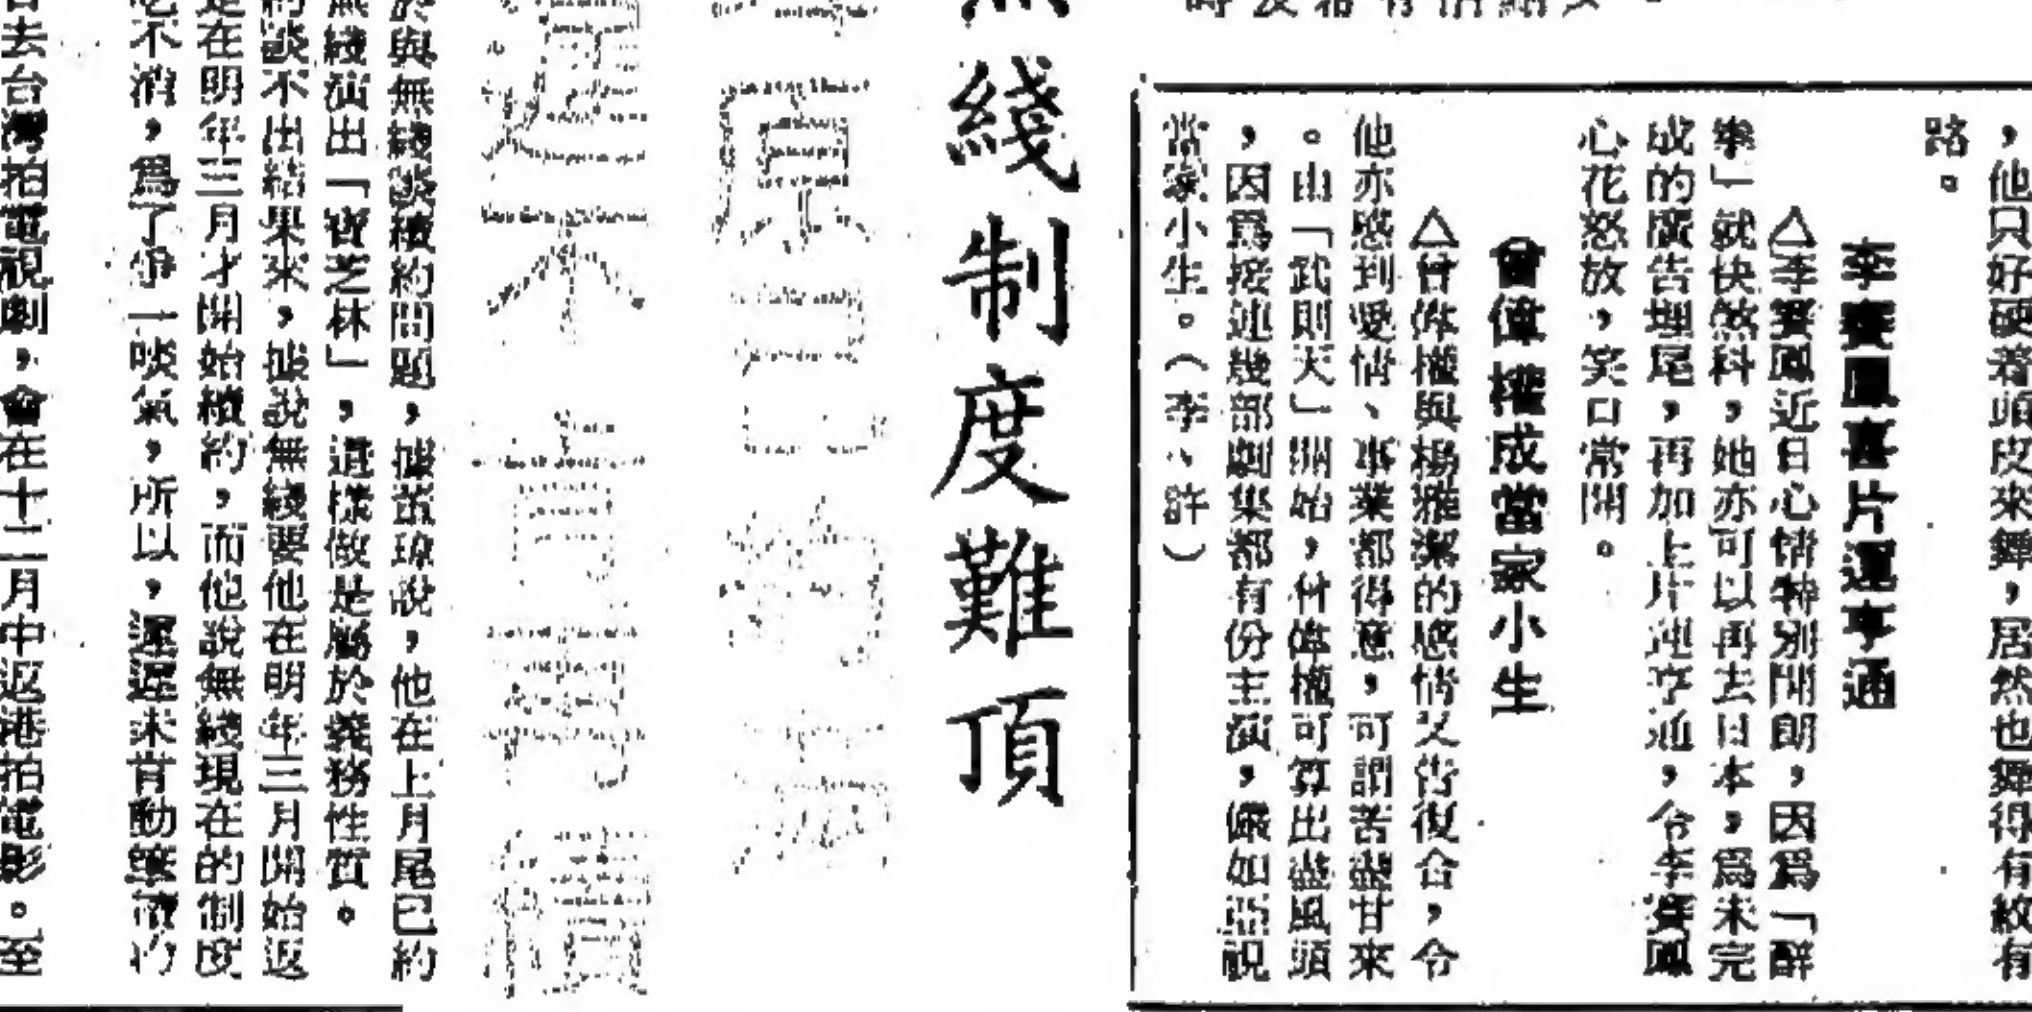 ，他只好硬着頭皮來舞，居然也舞得有紋有
路。
李賽鳳喜片運亨通
△李賽鳳近日心情特別開朗，因爲「醉
拳」就快煞科，她亦可以再去日本，爲未完
成的廣告埋尾，再加上片運亨通，令李賽鳳
心花怒放，笑口常開。
曾偉權成當家小生
△曾偉權與楊雅潔的感情又告復合，令
他亦感到愛情、事業都得意，可謂苦盡甘來
。由「武則天」開始，曾偉權可算出盡風頭
，因爲接連幾部劇集都有份主演，儼如亞視
當家小生。（李、許）
綫制度難頂
不肯再續
與無綫談續約問題，據董瑋說，他在上月尾已約
無綫演出「寶芝林」，這樣做是屬於義務性質。
約談不出結果來，據說無綫要他在明年三月開始返
是在明年三月才開始續約，而他說無綫現在的制度
不消，爲了爭一啖氣，所以，遲遲未肯動筆續約
去台灣拍電視劇，會在十二月中返港拍電影。至